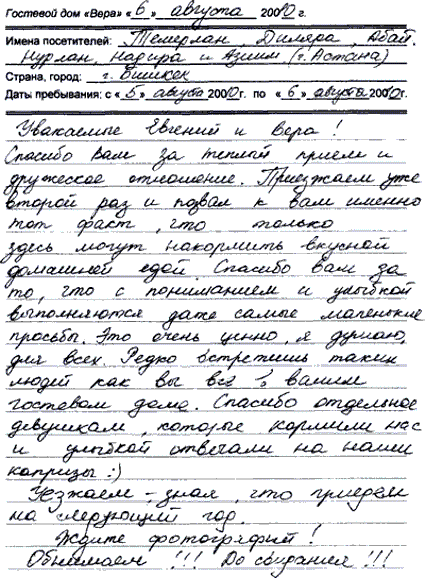 Гостевой дом «Вера» «6» августа 20010 г.
Имена посетителей: Темерлан, Диляра, Абай,
Нурлан, Надира и Азиим (г. Астана)
Страна, город: г. Бишкек
Даты пребывания: с «5» августа 20010г. по «6» августа 20010г.
Уважаемые Евгений и Вера!
Спасибо Вам за теплый прием и
дружеское отношение. Приезжаем уже
второй раз и позвал к вам именно
тот факт, что только
здесь могут накормить вкусной
домашней едой. Спасибо Вам за
то, что с пониманием и улыбкой
выполняются даже самые маленькие
просьбы. Это очень ценно, я думаю,
для всех. Редко встретишь таких
людей как вы все в вашем
гостевом доме. Спасибо отдельное
девушкам, которые кормили нас
и улыбкой отвечали на наши
капризы :)
Уезжаем - зная, что приедем
на следующий год.
Ждите фотографий!
Обнимаем !!! До свидания !!!